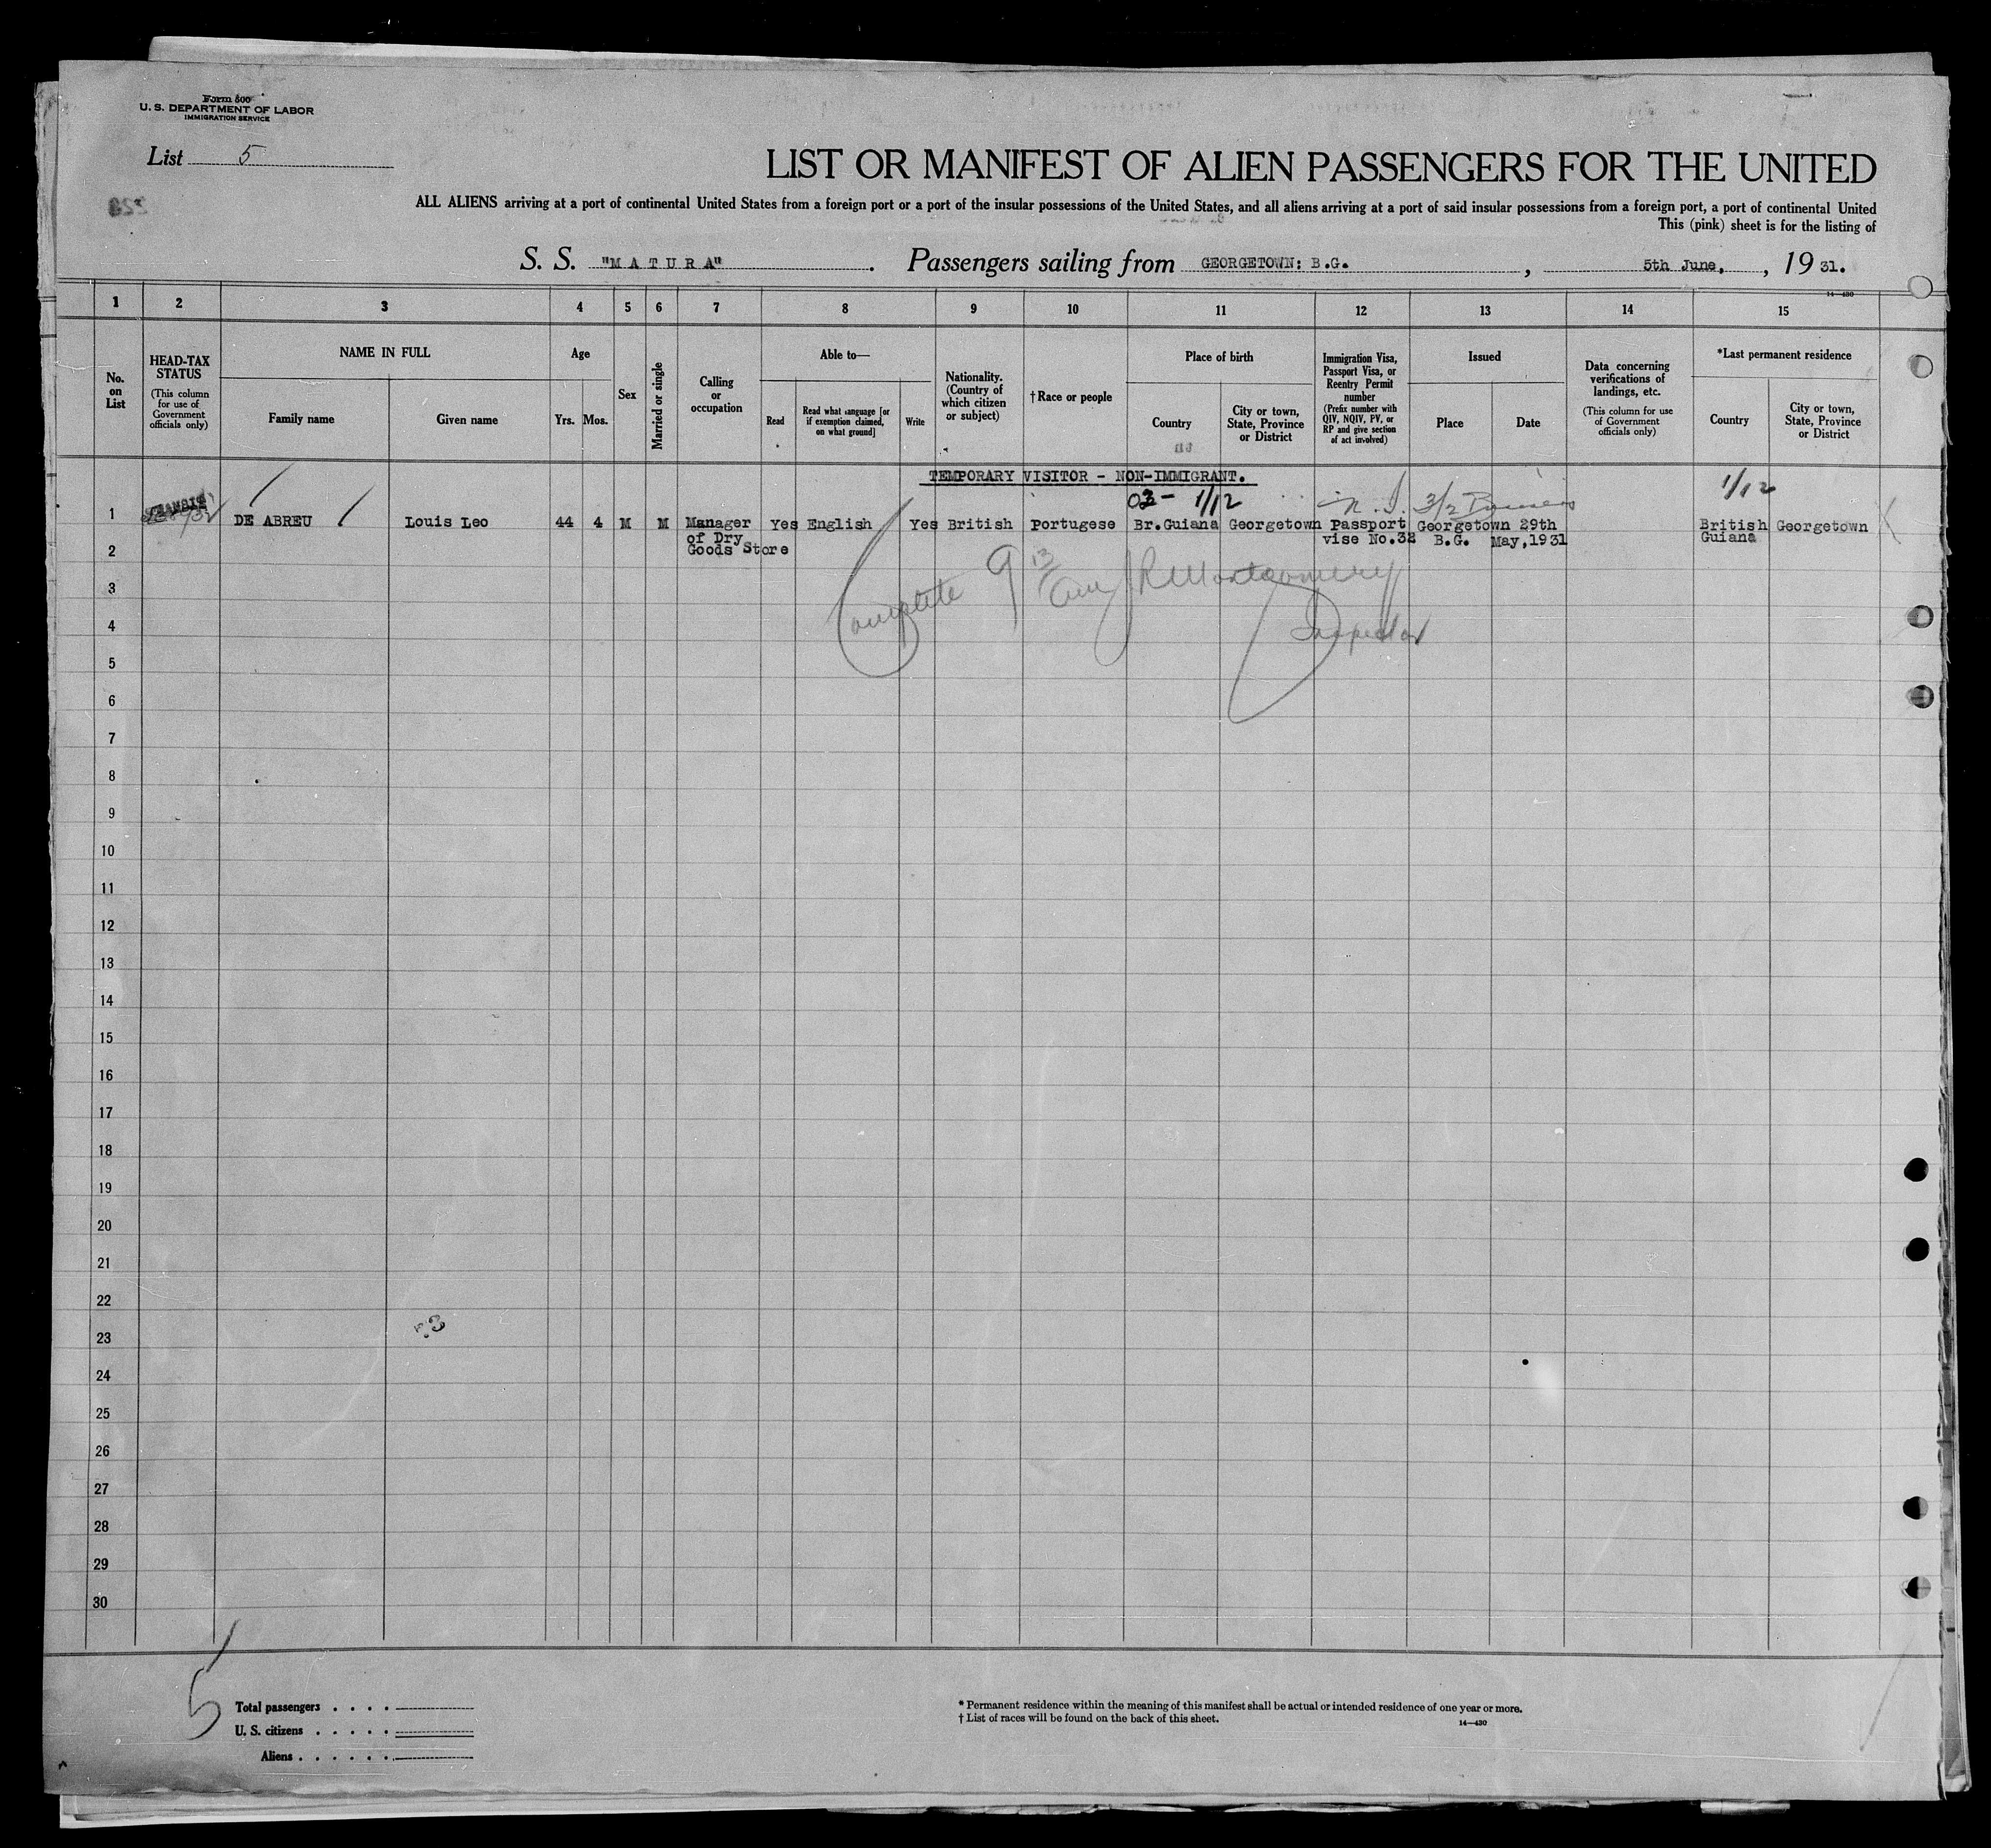 Form 500
U. S. DEPARTMENT OF LABOR
IMMIGRATION SERVICE
List 5
LIST OR MANIFEST OF ALIEN PASSENGERS FOR THE UNITED
ALL ALIENS arriving at a port of continental United States from a foreign port or a port of the insular possessions of the United States, and all aliens arriving at a port of said insular possessions from a foreign port, a port of continental United
This (pink) sheet is for the listing of
S. S. "MATURA". Passengers sailing from GEORGETOWN: B.G., 5th June, , 19 31.
14—430
1 2 3 4 5 6 7 8 9 10 11 12 13 14 15
No. on List
HEAD-TAX STATUS
(This column for use of Government officials only)
NAME IN FULL
Family name
Given name
Age
Yrs. Mos.
Sex
Married or single
Calling or occupation
Able to—
Read
Read what language [or if exemption claimed, on what ground]
Write
Nationality. (Country of which citizen or subject)
† Race or people
Place of birth
Country
City or town, State, Province or District
Immigration Visa, Passport Visa, or Reentry Permit number
(Prefix number with QIV, NQIV, PV, or RP and give section of act involved)
Issued
Place
Date
Data concerning verifications of landings, etc.
(This column for use of Government officials only)
*Last permanent residence
Country
City or town, State, Province or District
TEMPORARY VISITOR - NON-IMMIGRANT.
03- 1/12 N.I. 3/2 Business 1/12
1 TRANSIT DE ABREU Louis Leo 44 4 M M Manager Yes English Yes British Portugese Br.Guiana Georgetown Passport Georgetown 29th British Georgetown
of Dry vise No.32 B.G. May,1931 Guiana
2 Goods Store
Complete 9 R Montgomery
3
Inspector
4
5
6
7
8
9
10
11
12
13
14
15
16
17
18
19
20
21
22
23
24
25
26
27
28
29
30
5
Total passengers . . . .
U. S. citizens . . . . .
Aliens . . . . . .
* Permanent residence within the meaning of this manifest shall be actual or intended residence of one year or more.
† List of races will be found on the back of this sheet.
14—430